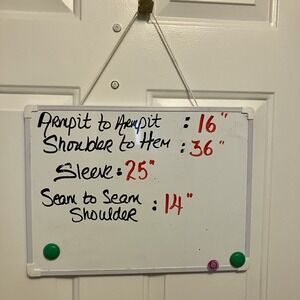 Armpit to Armpit : 16"
Shoulder to Hem : 36"
Sleeve : 25"
Seam to Seam
Shoulder : 14"